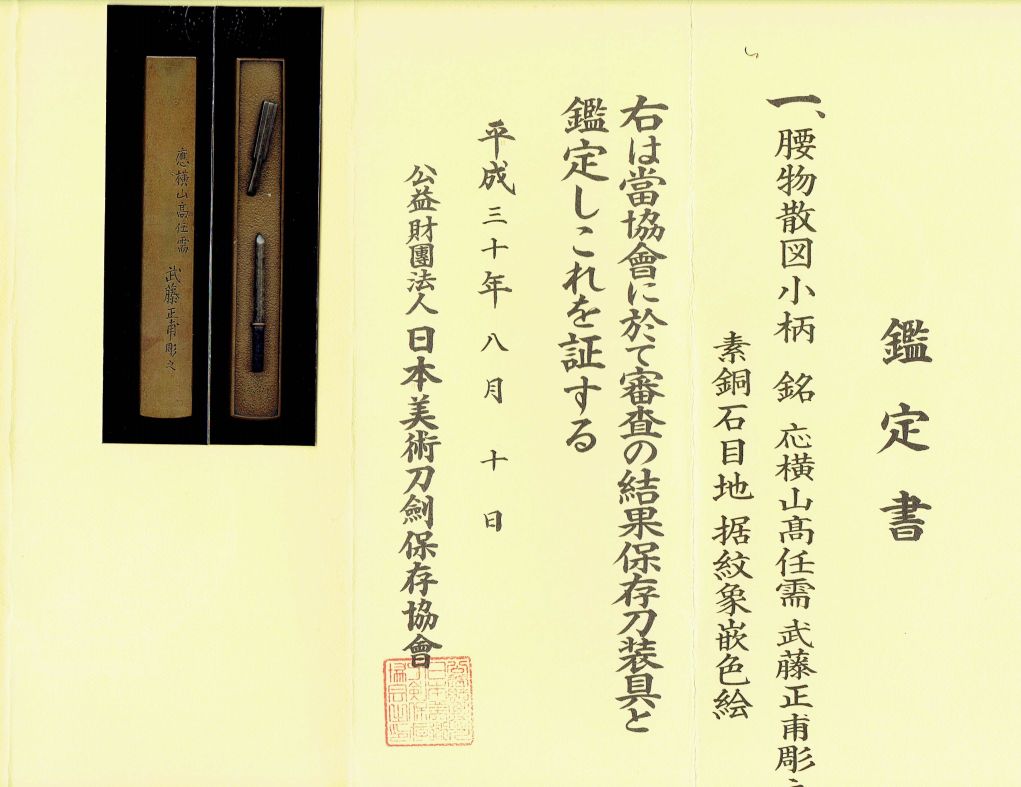 鑑定書
一、腰物散図小柄 銘 応横山高任需 武藤正甫彫
素銅石目地 据紋象嵌色絵
右は當協會に於て審査の結果保存刀装具と
鑑定しこれを証する
平成三十年八月十日
公益財團法人日本美術刀劍保存協會
應横山髙任需 武藤正甫彫之